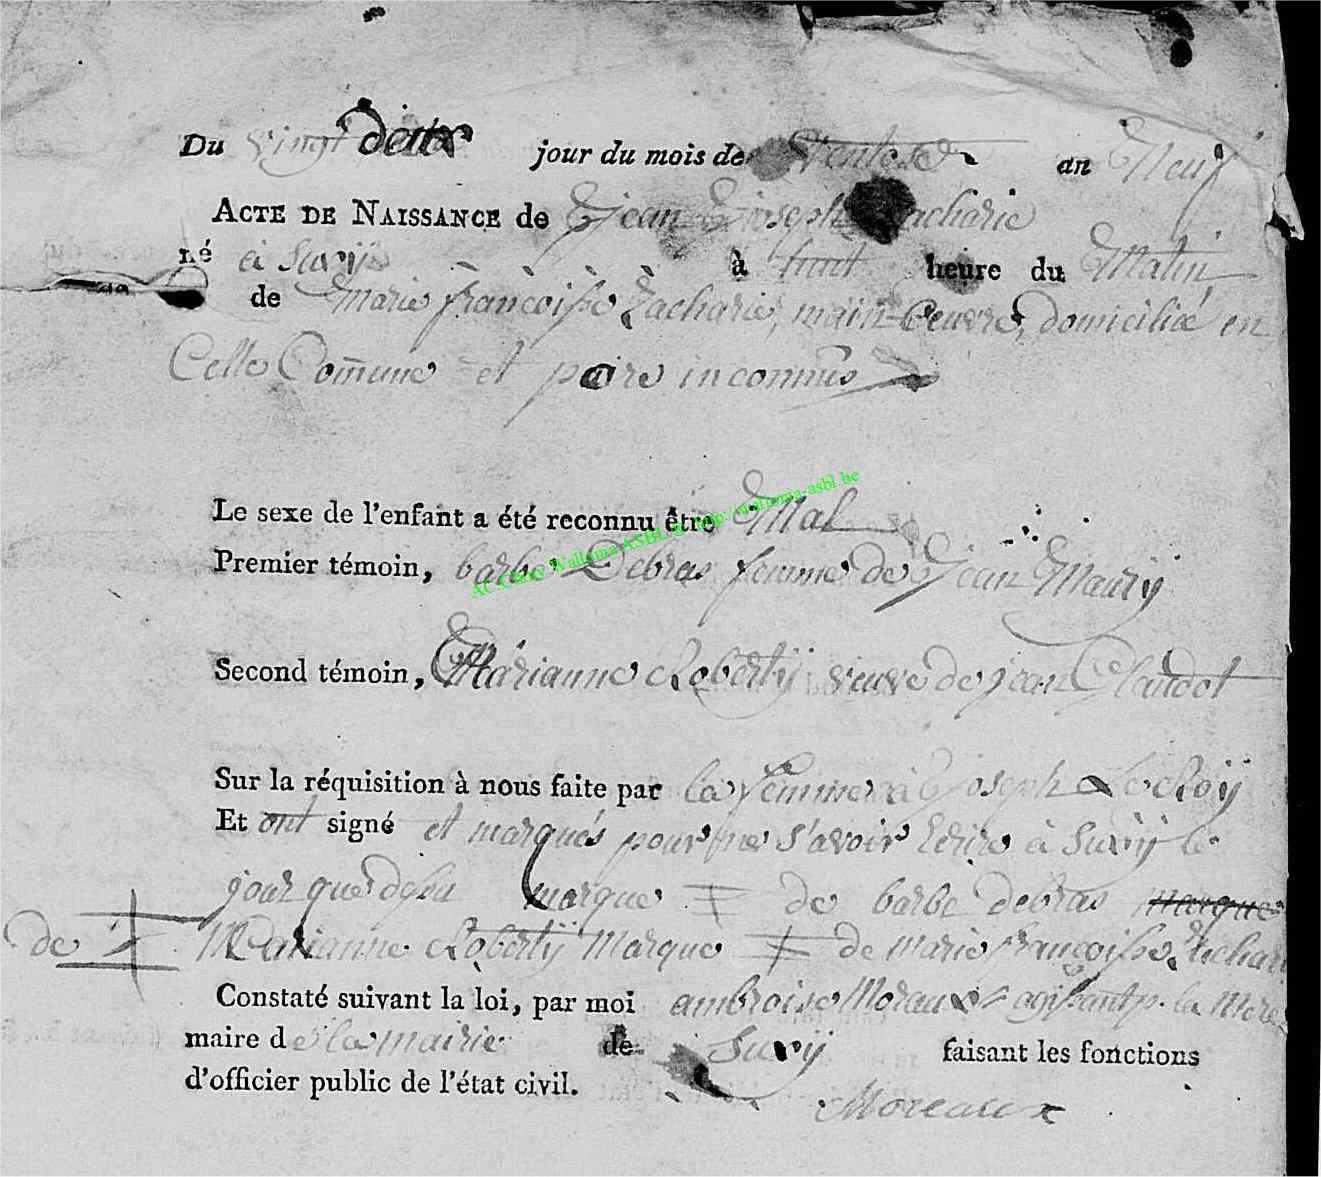 Du Vingt deux jour du mois de Ventose an Neuf
ACTE DE NAISSANCE de Jean Joseph Zacharie
né à Suxÿ à huit heure du Matin
de Marie françoisse Zacharie, main-Oeuvre, domiciliée en
Celle Com̄une et paire inconnus
Le sexe de l'enfant a été reconnu être Mal
Premier témoin, barbe Debras femme de Jean Maurÿ
AC Chiny Walloma ASBL http://walloma-asbl.be
Second témoin, Marianne Robertÿ veuve de jean Claudot
Sur la réquisition à nous faite par la femme à Joseph Le Roÿ
Et ont signé et marqués pour ne s'avoir Ecrire à Suxÿ le
jour que dessu marque de barbe debras marque
de Marianne Robertÿ Marque de Marie françoisse Zachari
Constaté suivant la loi, par moi ambroise Moraux agissant p. la Mere
maire de la mairie de Suxÿ faisant les fonctions
d'officier public de l'état civil.
Moreaux